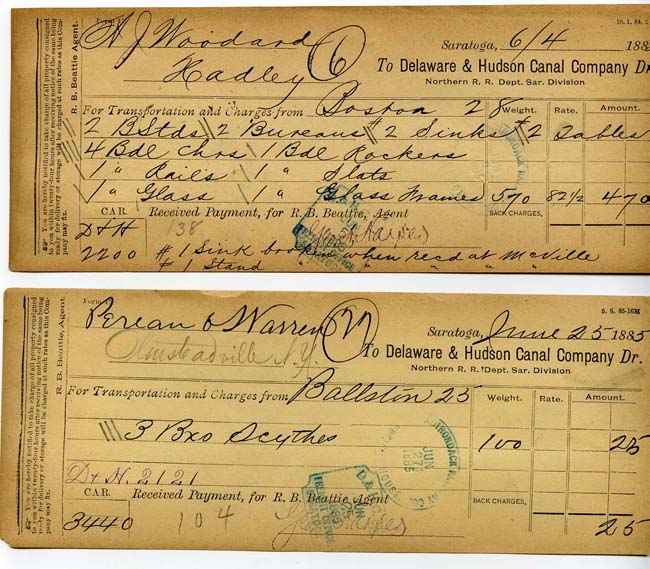 You are hereby notified to take charge of all property consigned
to you within twenty-four hours after receiving notice of the same being
ready for delivery or storage will be charged at such rates as this Com-
pany may fix.
R. B. Beattie, Agent.
10. 1. 84. 2
Saratoga, 6/4 188
A J Woodard
Hadley
To Delaware & Hudson Canal Company Dr.
Northern R. R. Dept. Sar. Division
For Transportation and Charges from Boston 28 Weight. Rate. Amount.
2 BStds 2 Bureaus #2 Sinks #2 Tables
4 Bdl Chrs 1 Bdl Rockers
1 " Rails 1 " Slats
1 " Glass 1 " Glass Frames 570 82½ 470
CAR. Received Payment, for R. B. Beattie, Agent BACK CHARGES,
D+H 138
2200 #1 Sink when recd at McVille
#1 Stand " " " "
You are hereby notified to take charge of all property consigned
to you within twenty-four hours after receiving notice of the same being
ready for delivery or storage will be charged at such rates as this Com-
pany may fix.
R. B. Beattie, Agent.
5. 6. 85-16M
& Warren
Saratoga, June 25 1885
Olmsteadville N.Y.
To Delaware & Hudson Canal Company Dr.
Northern R. R. Dept. Sar. Division
For Transportation and Charges from Ballston 25 Weight. Rate. Amount.
3 Bxs Scythes 100 25
ADIRONDACK RAILWAY CO.
JUN 27 1885
D+H. 2121
CAR. Received Payment, for R. B. Beattie Agent BACK CHARGES,
3440 104 25